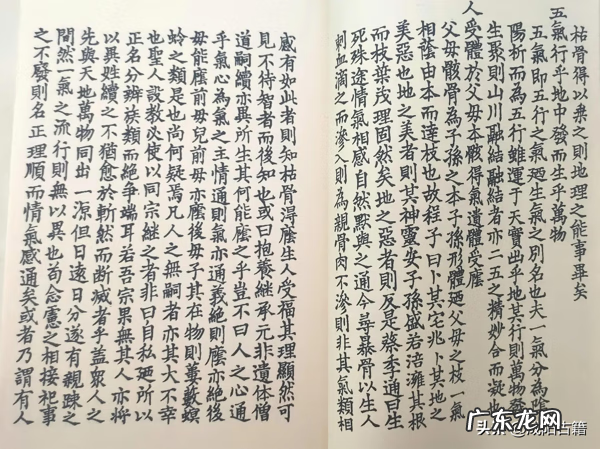 枯骨得以乘之則地理之能事畢矣
五氣行乎地中發而生乎萬物
五氣即五行之氣廼生氣之別名也夫一氣分為陰
陽析而為五行雖運于天實出乎地其行則萬物發
生聚則山川融結融結者亦二五之精妙合而凝也
人
受體於父母本骸得氣遺體受廕
父母骸骨為子孫之本子孫形體廼父母之枝一氣
相蔭由本而達枝也故程子曰卜其宅兆卜其地之
美惡也地之美者則其神靈安子孫盛若培擁其根
而枝葉茂理固然矣地之惡者則反是蔡季通曰生
死殊途情氣相感自然默與之通今尋暴骨以生人
刺血滴之而滲入則為親骨肉不滲則非其氣類相
感有如此者則知枯骨得廕生人受福其理顯然可
見不待智者而後知也或曰抱養継承元非遺体僧
道嗣續亦異所生其何能廕之乎豈不曰人之心通
乎氣心為氣之主情通則氣亦通義絕則廕亦絕後
母能廕前母兒前母亦廕後母子其在物則蔞藪螟
蛉之類是也尚何疑焉凡人之無嗣者亦其大不幸
也聖人設教必使以同宗継之者非曰自私廼所以
正名分辨族類而絕爭端耳若吾宗果無其人亦將
以異姓續之不猶愈於斬然而断滅者乎蓋眾人之
先與天地萬物同出一源但日遠日分遂有親踈之
間然一氣之流行則無以異也苟念慮之相接祀事
之不發則名正理順而情氣感通矣或者乃謂有人
头条 @戏阳古籍
广东龙网